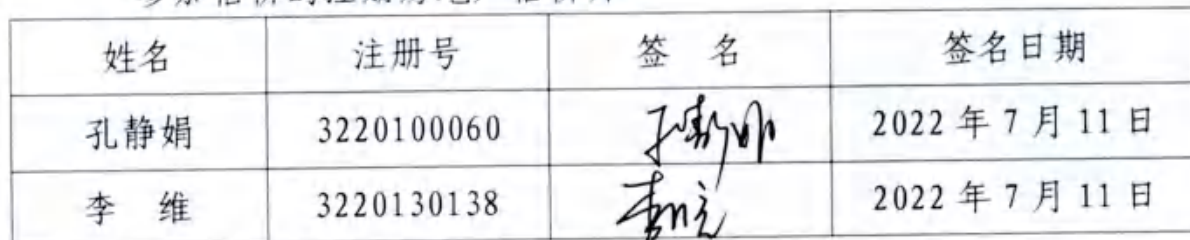 姓名 注册号 签 名 签名日期
孔静娟 3220100060 2022 年 7 月 11 日
李 维 3220130138 2022 年 7 月 11 日